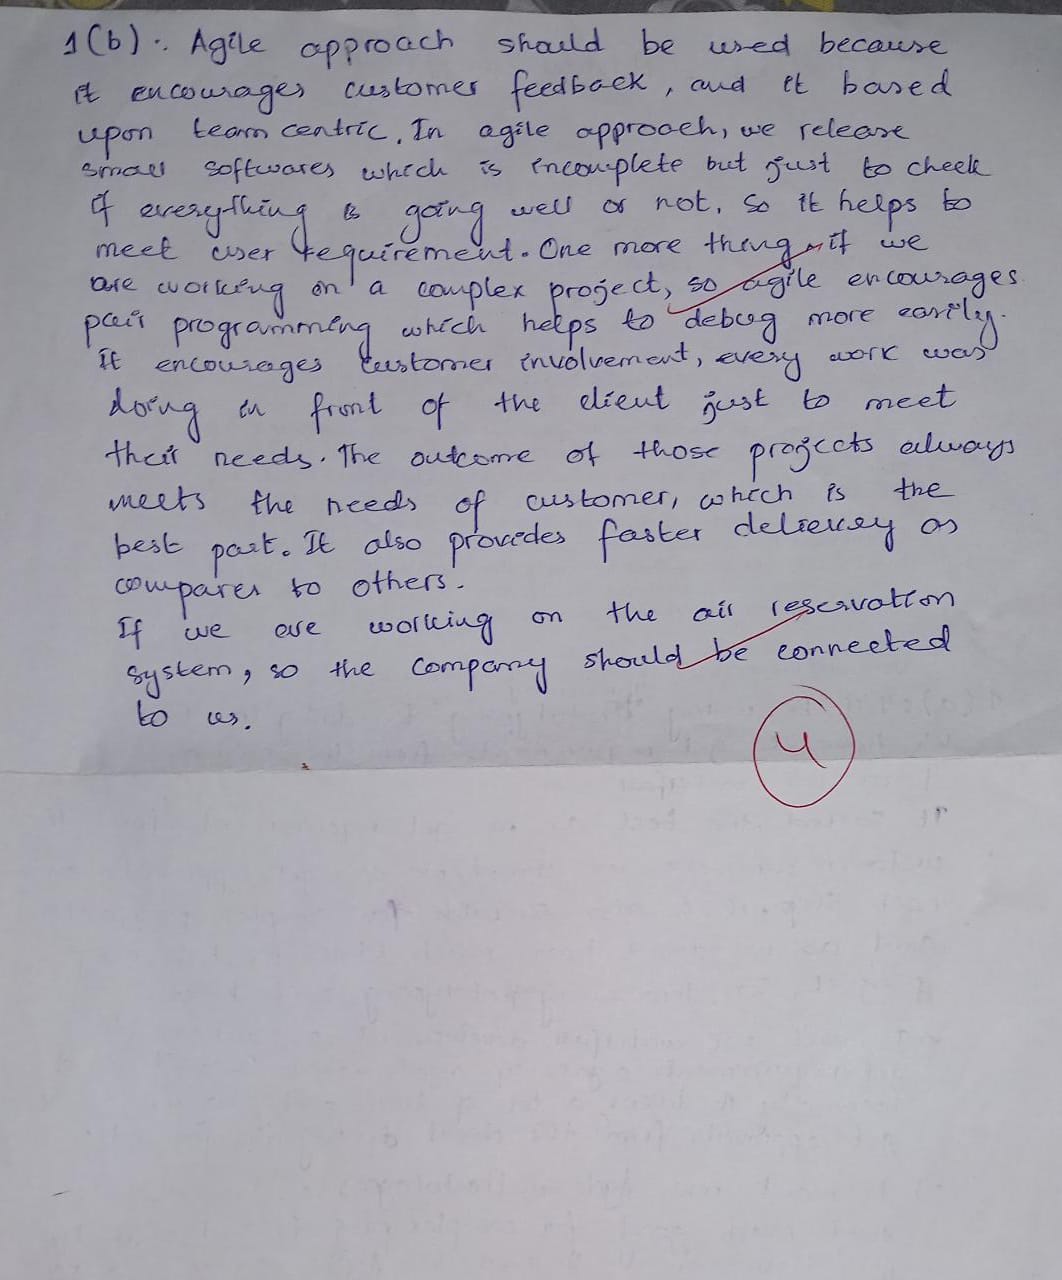 1(b):. Agile approach should be used because
it encourages customer feedback, and it based
upon team centric. In agile approach, we release
small softwares which is incomplete but just to check
if everything is going well or not. So it helps to
meet user requirement. One more thing if we
are working on a complex project, so agile encourages
pair programming which helps to debug more easily.
It encourages customer involvement, every work was
doing in front of the client just to meet
their needs. The outcome of those projects always
meets the needs of customer, which is the
best part. It also provides faster delievey as
compares to others.
If we are working on the air reservation
system, so the company should be connected
to us.
4